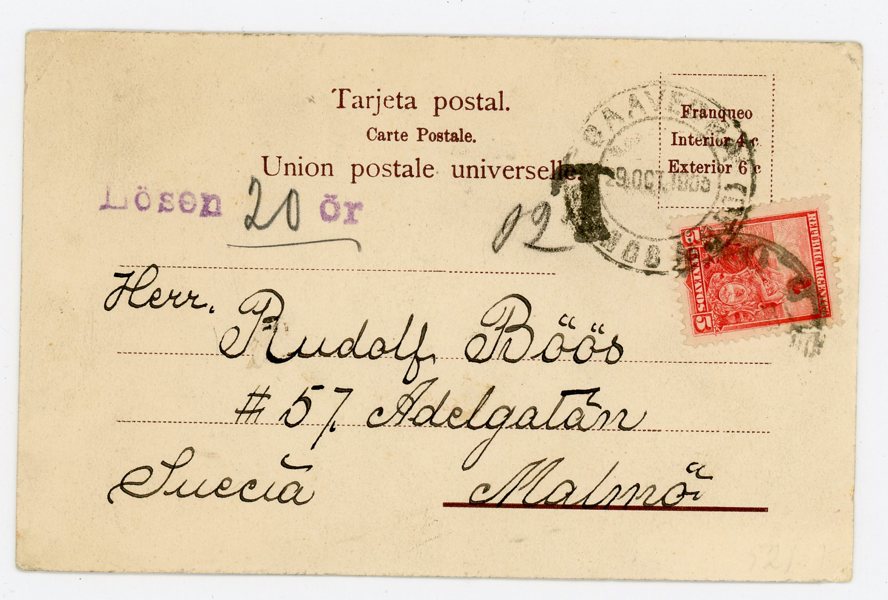 Tarjeta postal.
Carte Postale.
Union postale universelle.
Franqueo
Interior 4 c
Exterior 6 c
T
29 OCT
Lösen 20 ör
02
REPUBLICA ARGENTINA
5 CENTAVOS 5
Herr.
Rudolf Böös
# 57. Adelgatan
Succia Malmö